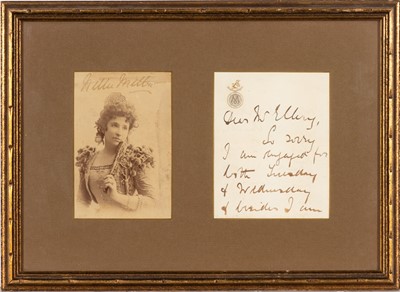 Nellie Melba
Dear Mr Ellery,
So sorry
I am engaged for
both Tuesday
& Wednesday
& besides I am